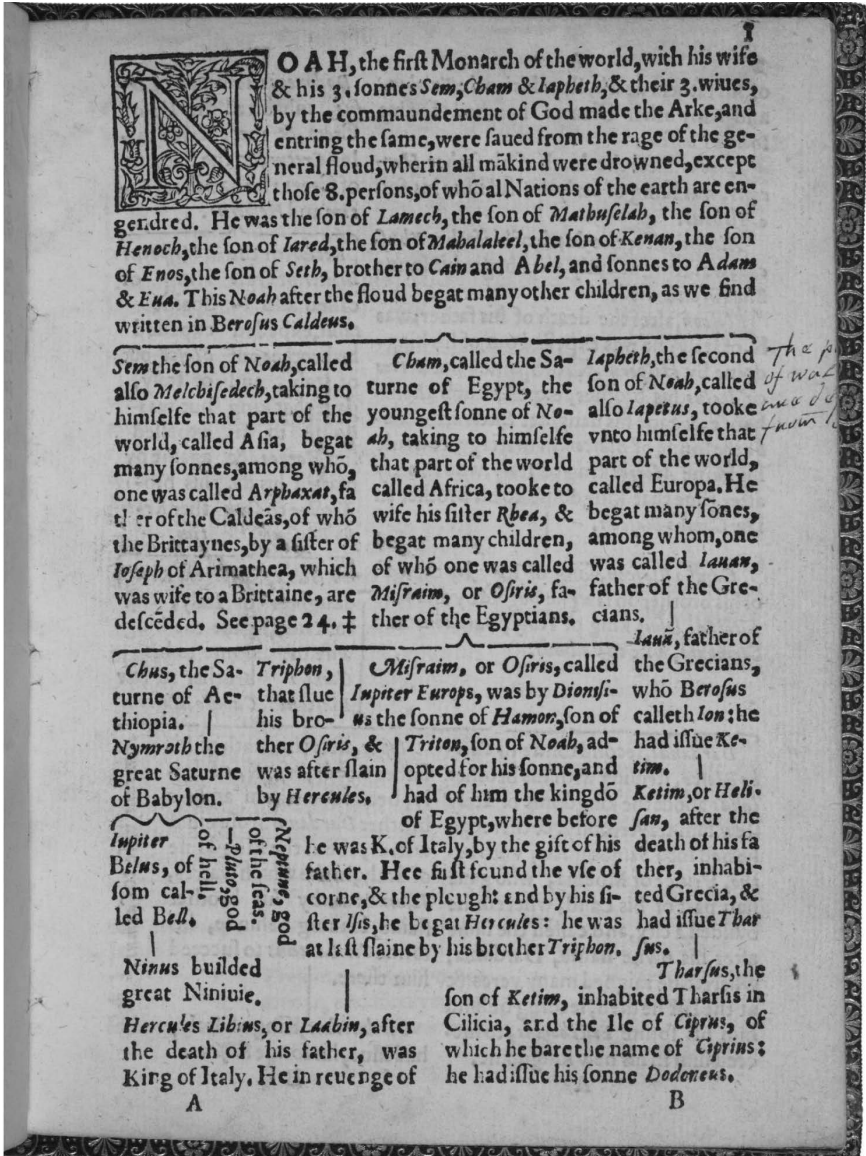 1
NOAH, the firſt Monarch of the world, with his wife
& his 3. ſonnes Sem, Cham & Iapheth, & their 3. wiues,
by the commaundement of God made the Arke, and
entring the ſame, were ſaued from the rage of the ge-
neral floud, wherin all mākind were drowned, except
thoſe 8. perſons, of whō al Nations of the earth are en-
gendred. He was the ſon of Lamech, the ſon of Mathuſelah, the ſon of
Henoch, the ſon of Iared, the ſon of Mahalaleel, the ſon of Kenan, the ſon
of Enos, the ſon of Seth, brother to Cain and Abel, and ſonnes to Adam
& Eua. This Noah after the floud begat many other children, as we find
written in Beroſus Caldeus.
Sem the ſon of Noah, called
alſo Melchiſedech, taking to
himſelfe that part of the
world, called Aſia, begat
many ſonnes, among whō,
one was called Arphaxat, fa
ther of the Caldeās, of whō
the Brittaynes, by a ſiſter of
Ioſeph of Arimathea, which
was wife to a Brittaine, are
deſcēded. See page 24. ‡
Cham, called the Sa-
turne of Egypt, the
youngeſt ſonne of No-
ah, taking to himſelfe
that part of the world
called Africa, tooke to
wife his ſiſter Rhea, &
begat many children,
of whō one was called
Miſraim, or Oſiris, fa-
ther of the Egyptians.
Iapheth, the ſecond
ſon of Noah, called
alſo Iapetus, tooke
vnto himſelfe that
part of the world,
called Europa. He
begat many ſōnes,
among whom, one
was called Iauan,
father of the Gre-
cians.
The
of
and
from
Chus, the Sa-
turne of Ae-
thiopia.
Nymroth the
great Saturne
of Babylon.
Triphon,
that ſlue
his bro-
ther Oſiris, &
was after ſlain
by Hercules.
Miſraim, or Oſiris, called
Iupiter Europs, was by Dioniſi-
us the ſonne of Hamon, ſon of
Triton, ſon of Noah, ad-
opted for his ſonne, and
had of him the kingdō
of Egypt, where before
he was K. of Italy, by the gift of his
father. Hee firſt found the vſe of
corne, & the plough: and by his ſi-
ſter Iſis, he begat Hercules: he was
at laſt ſlaine by his brother Triphon.
Iauā, father of
the Grecians,
whō Beroſus
calleth Ion: he
had iſſue Ke-
tim.
Ketim, or Heli-
ſan, after the
death of his fa
ther, inhabi-
ted Grecia, &
had iſſue Thar
ſus.
Iupiter
Belus, of
ſom cal-
led Bell.
Pluto, god
of hell.
Neptune, god
of the ſeas.
Ninus builded
great Niniuie.
Hercules Libius, or Laabin, after
the death of his father, was
King of Italy. He in reuenge of
A
Tharſus, the
ſon of Ketim, inhabited Tharſis in
Cilicia, and the Ile of Ciprus, of
which he bare the name of Ciprius:
he had iſſue his ſonne Dodoneus.
B